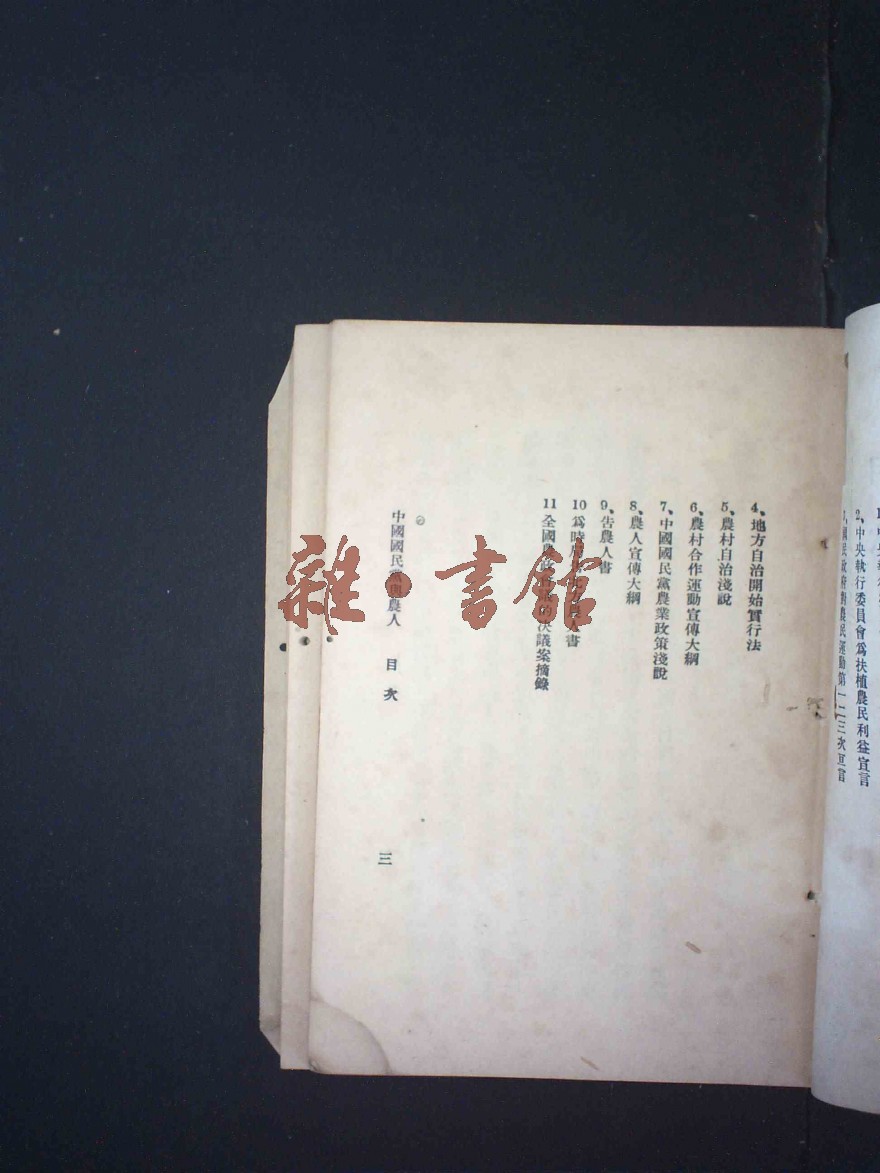 2、中央執行委員會爲扶植農民利益宣言
3、國民政府對農民運動第一二三次宣言
4、地方自治開始實行法
5、農村自治淺說
6、農村合作運動宣傳大綱
7、中國國民黨農業政策淺說
8、農人宣傳大綱
9、告農人書
10 爲時局
書
11 全國農政會議的決議案摘錄
中國國民黨與農人 目次
三
雜·書館